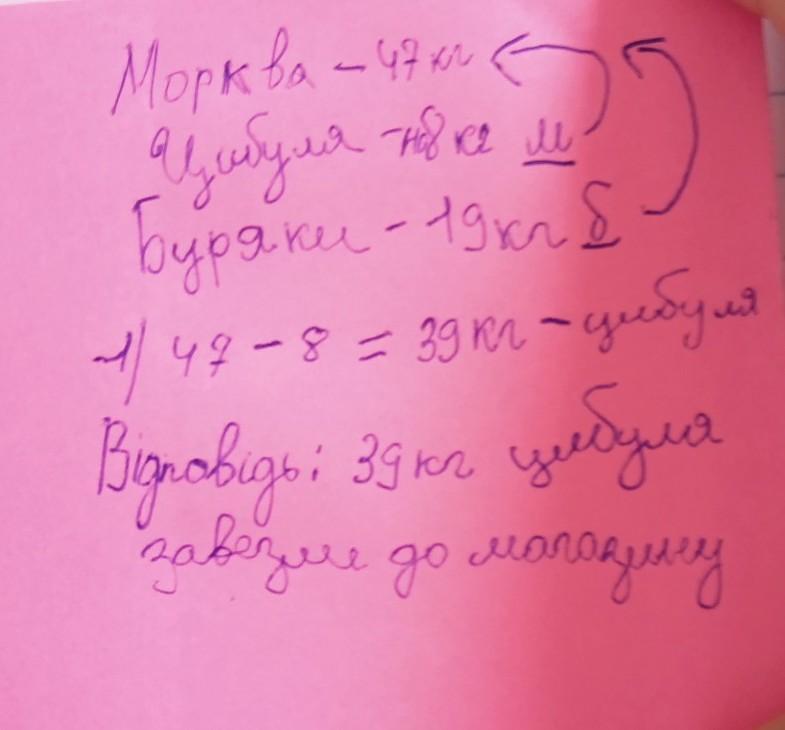 Морква – 47 кг
Цибуля – на 8 кг м
Буряки – 19 кг б
1) 47 – 8 = 39 кг – цибуля
Відповідь: 39 кг цибуля
завезли до магазину